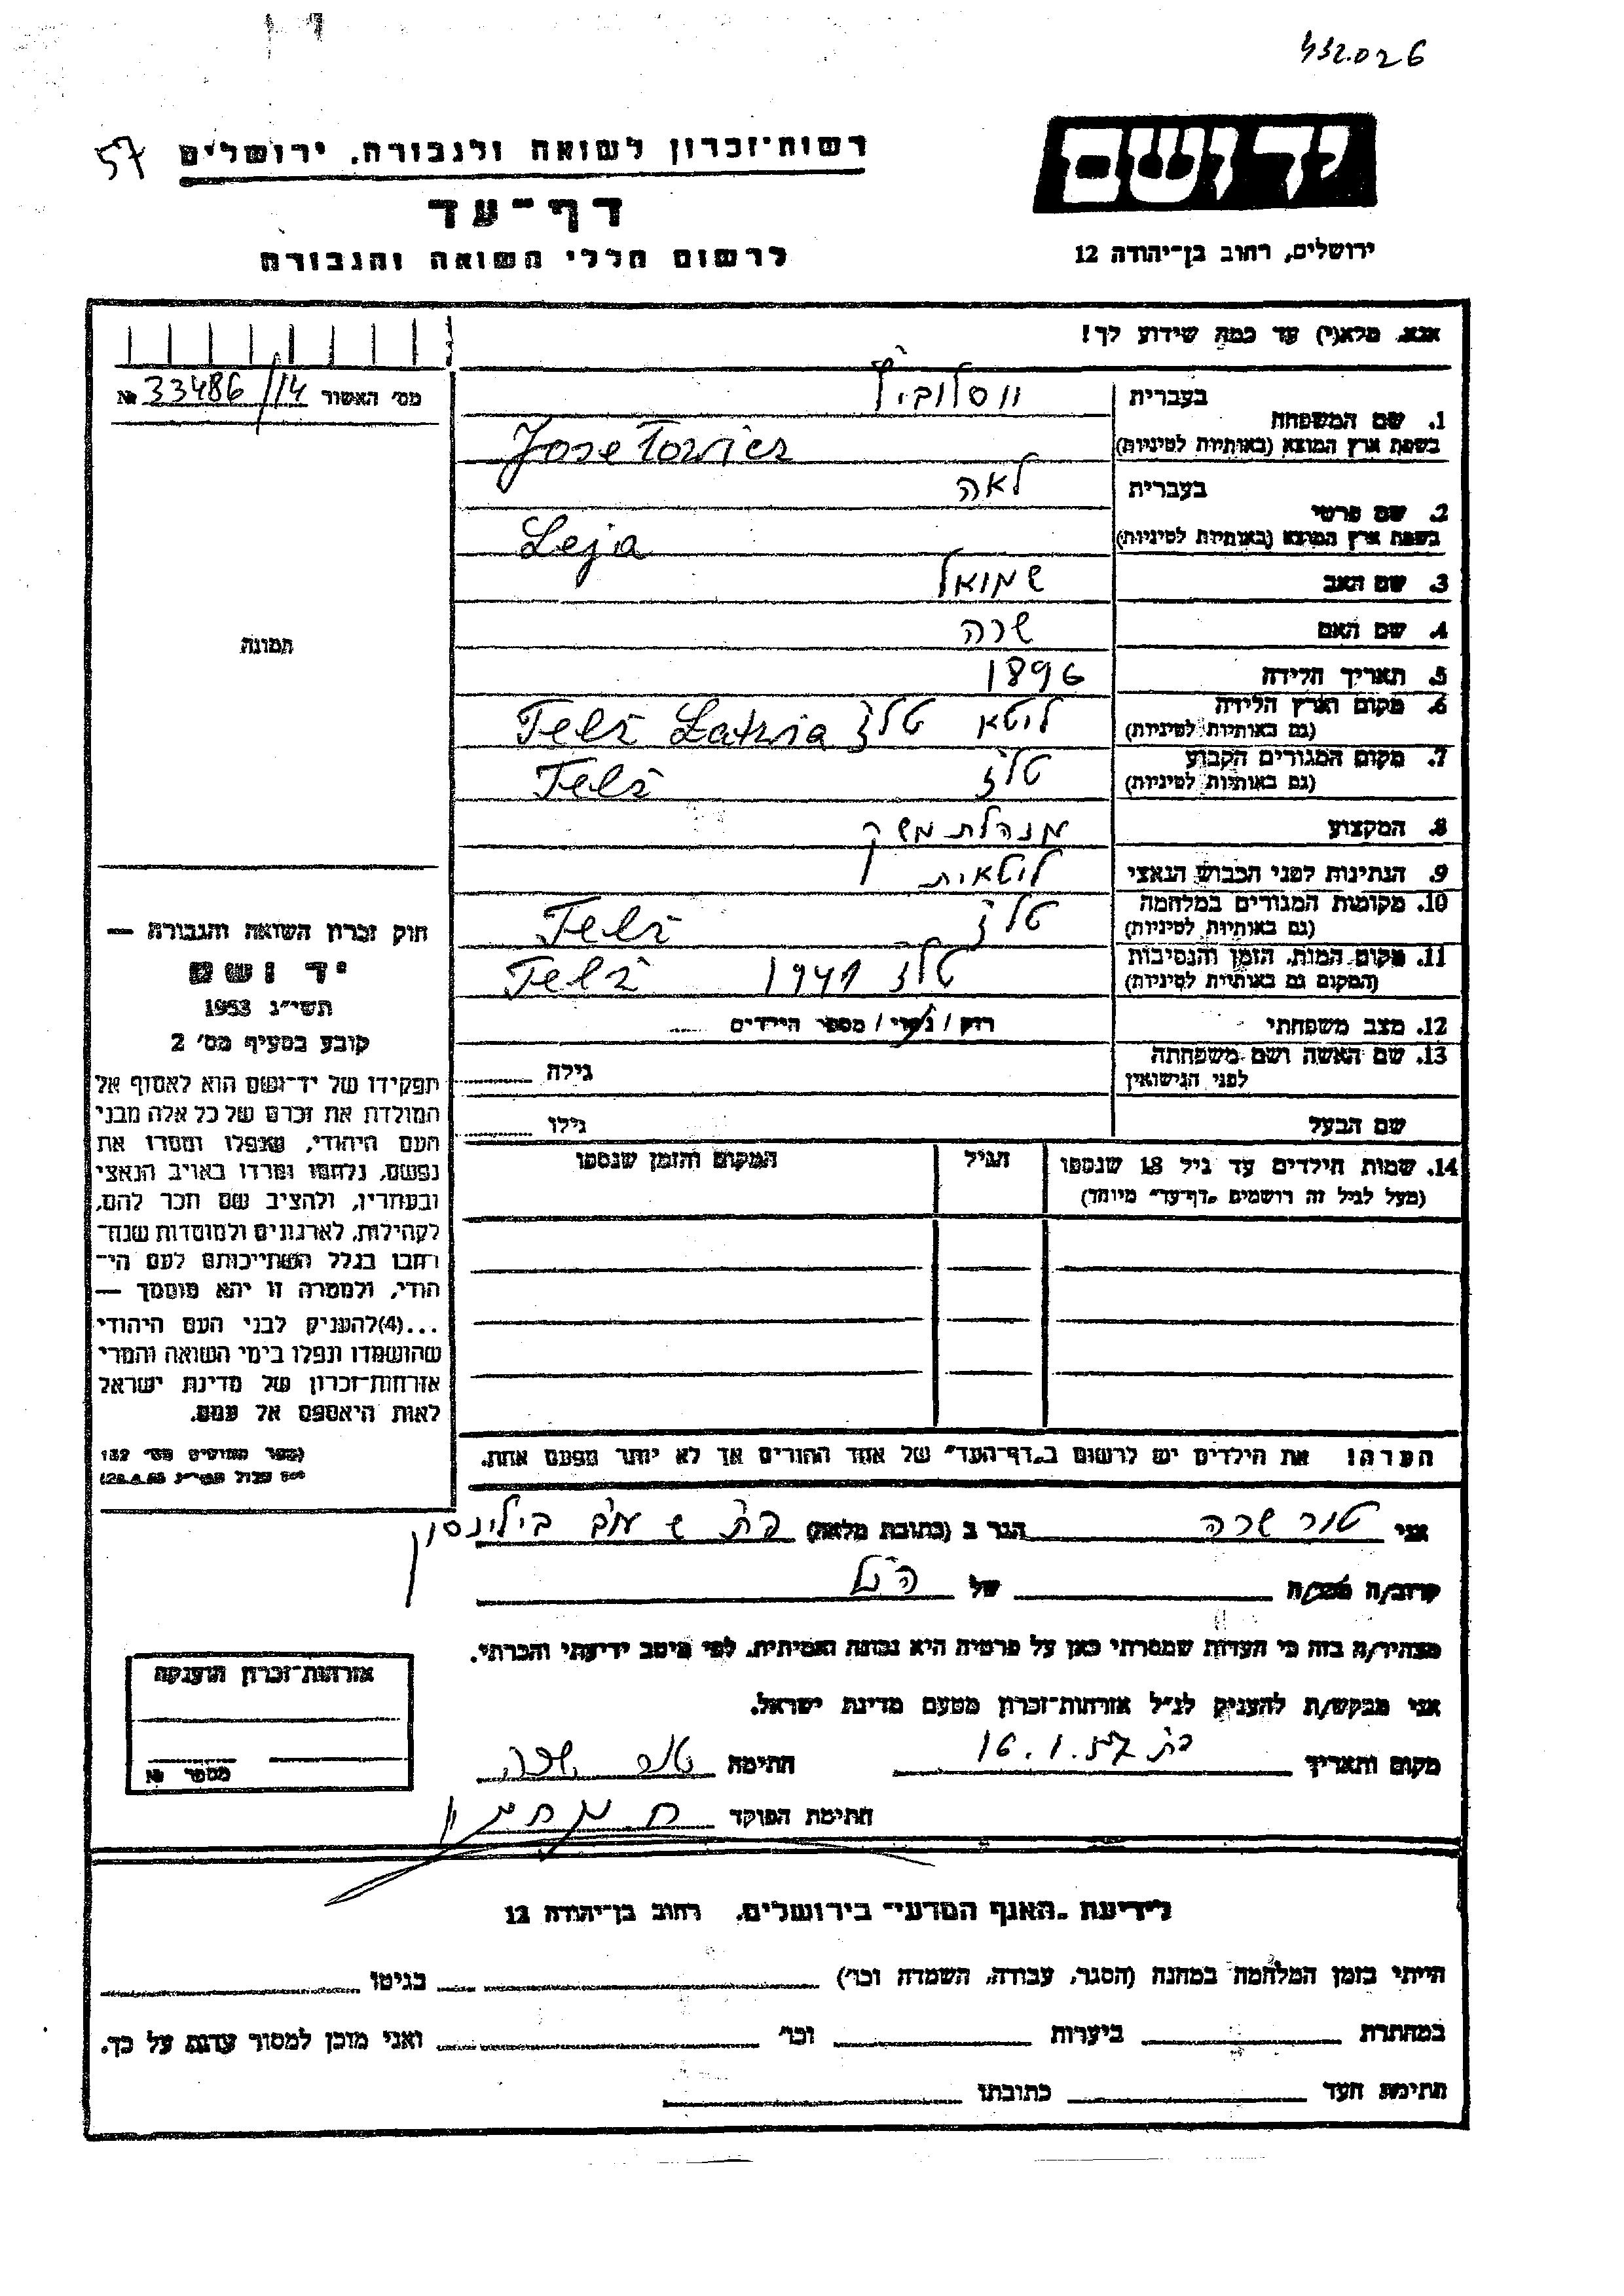 432.026
יד ושם
ירושלים, רחוב בן־יהודה 12
רשות־זכרון לשואה ולגבורה, ירושלים
57
דף־עד
לרשום חללי השואה והגבורה
אנא, מלא(י) עד כמה שידוע לך!
מס׳ האשור № 33486/14
תמונה
חוק זכרון השואה והגבורה —
יד ושם
תשי״ג 1953
קובע בסעיף מס׳ 2
תפקידו של יד־ושם הוא לאסוף אל
המולדת את זכרם של כל אלה מבני
העם היהודי, שנפלו ומסרו את
נפשם, נלחמו ומרדו באויב הנאצי
ובעוזריו, ולהציב שם וזכר להם,
לקהילות, לארגונים ולמוסדות שנח־
רבו בגלל השתייכותם לעם הי־
הודי, ולמטרה זו יהא מוסמך —
...(4)להעניק לבני העם היהודי
שהושמדו ונפלו בימי השואה והמרי
אזרחות־זכרון של מדינת ישראל
לאות היאספם אל עמם.
(ספר החוקים מס׳ 132
1. שם המשפחה
בעברית
בשפת ארץ המוצא (באותיות לטיניות)
2. שם פרטי
בעברית לאה
בשפת ארץ המוצא (באותיות לטיניות) Leja
3. שם האב שמואל
4. שם האם שרה
5. תאריך הלידה 1896
6. מקום וארץ הלידה ליטא טלז Telž
(גם באותיות לטיניות)
7. מקום המגורים הקבוע טלז Telž
(גם באותיות לטיניות)
8. המקצוע מנהלת משק
9. הנתינות לפני הכבוש הנאצי ליטאית
10. מקומות המגורים במלחמה טלז Telž
(גם באותיות לטיניות)
11. מקום המות, הזמן והנסיבות טלז 1941 Telž
(המקום גם באותיות לטיניות)
12. מצב משפחתי רווק / נשוי / מספר הילדים
13. שם האשה ושם משפחתה גילה
לפני הנישואין
שם הבעל גילו
14. שמות הילדים עד גיל 18 שנספו הגיל המקום והזמן שנספו
(מעל לגיל זה רושמים „דף־עד״ מיוחד)
הערה! את הילדים יש לרשום ב„דף־העד״ של אחד ההורים אך לא יותר מפעם אחת.
אני טור שרה הגר ב (כתובת מלאה) בילינסון
קרוב/ה מכר/ה של הנ״ל
מצהיר/ה בזה כי העדות שמסרתי כאן על פרטיה היא נכונה ואמיתית, לפי מיטב ידיעתי והכרתי.
אני מבקש/ת להעניק לנ״ל אזרחות־זכרון מטעם מדינת ישראל.
מקום ותאריך 16.1.57 חתימה טור שרה
חתימת הפוקד
אזרחות־זכרון הוענקה
מספר №
לידיעת „האגף המדעי״ בירושלים, רחוב בן־יהודה 12
הייתי בזמן המלחמה במחנה (הסגר, עבודה, השמדה וכו׳) בגיטו
במחתרת ביערות וכו׳ ואני מוכן למסור עדות על כך.
חתימת העד כתובתו